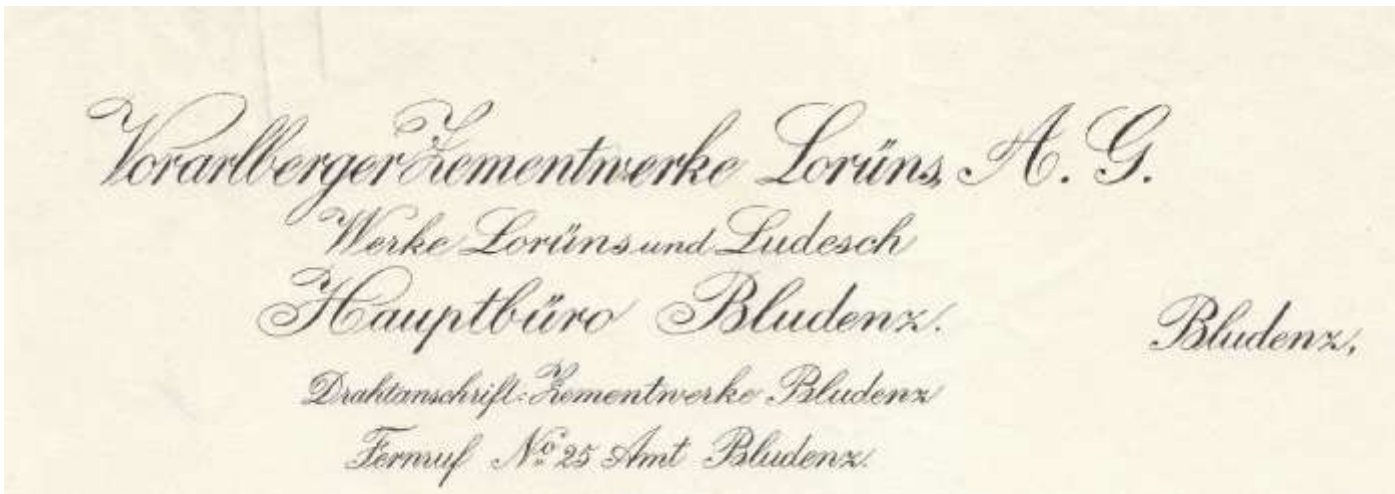 Vorarlberger Zementwerke Lorüns, A. G.
Werke Lorüns und Ludesch
Hauptbüro Bludenz.
Bludenz,
Drahtanschrift: Zementwerke Bludenz
Fernruf No 25 Amt Bludenz.